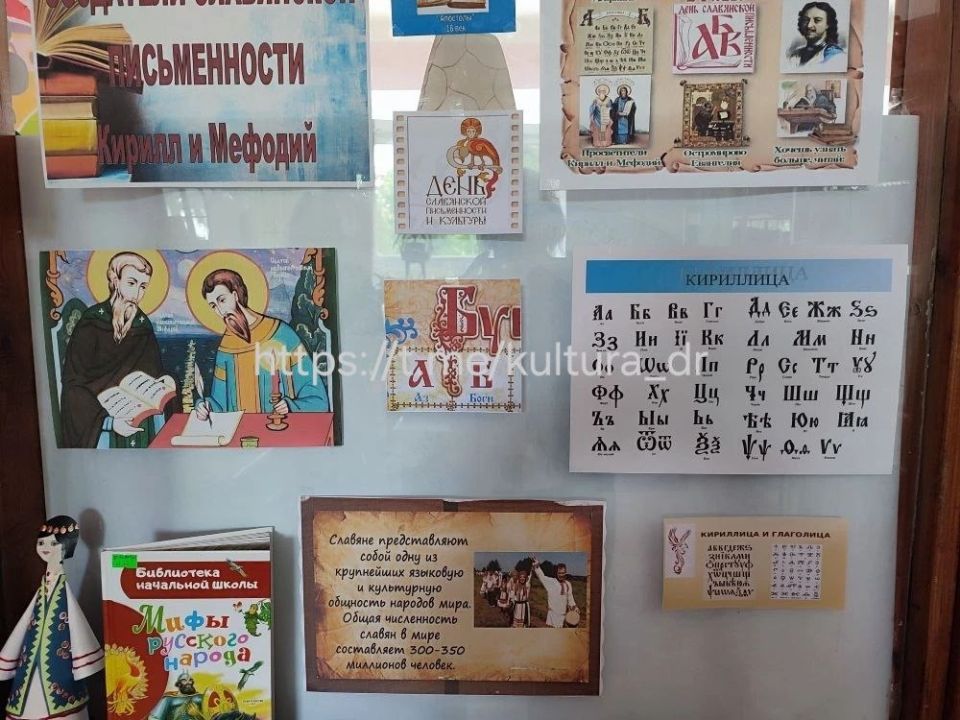 СОЗДАТЕЛИ СЛАВЯНСКОЙ
ПИСЬМЕННОСТИ
Кирилл и Мефодий
"Апостолы"
16 век
ДЕНЬ
СЛАВЯНСКОЙ
ПИСЬМЕННОСТИ
И КУЛЬТУРЫ
ДЕНЬ
СЛАВЯНСКОЙ ПИСЬМЕННОСТИ
АБВ
Просветители
Кирилл и Мефодий
Остромирово
Евангелие
Хочешь узнать
больше, читай:
Бук
А Б
Аз Боги
https://t.me/kultura_dr
КИРИЛЛИЦА
Аа Бб Вв Гг Дд Єє Жж Ѕѕ
Зз Ии Її Кк Лл Мм Нн
Оо Пп Рр Сс Тт Ѹѹ
Фф Хх Цц Чч Шш Щщ
Ъъ Ыы Ьь Ѣѣ Юю Ꙗꙗ
Ѿѿ Ѯѯ Ѱѱ Ѳѳ Ѵѵ
Славяне представляют
собой одну из
крупнейших языковую
и культурную
общность народов мира.
Общая численность
славян в мире
составляет 300-350
миллионов человек.
КИРИЛЛИЦА И ГЛАГОЛИЦА
Библиотека
начальной школы
Мифы
русского
народа